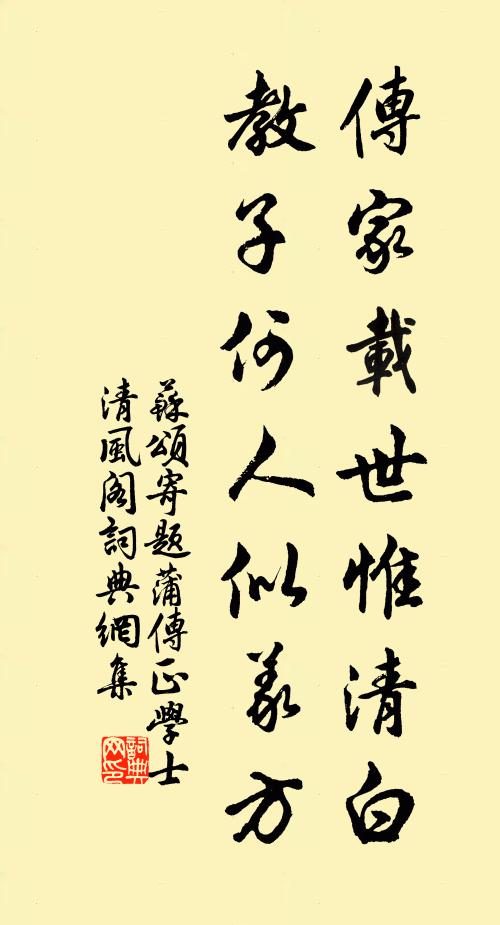 傳家載世惟清白
教子何人似義方
蘇頌寄題蒲傳正學士
清風閣詞典網集
詞典
网印